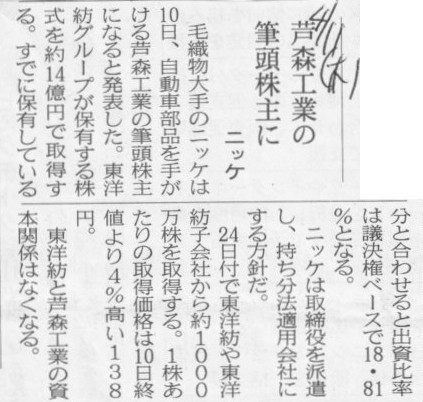 4/11(木)
芦森工業の
筆頭株主に
ニッケ
毛織物大手のニッケは
10日、自動車部品を手が
ける芦森工業の筆頭株主
になると発表した。東洋
紡グループが保有する株
式を約14億円で取得す
る。すでに保有している
分と合わせると出資比率
は議決権ベースで18・81
%となる。
ニッケは取締役を派遣
し、持ち分法適用会社に
する方針だ。
24日付で東洋紡や東洋
紡子会社から約1000
万株を取得する。1株あ
たりの取得価格は10日終
値より4%高い138
円。
東洋紡と芦森工業の資
本関係はなくなる。